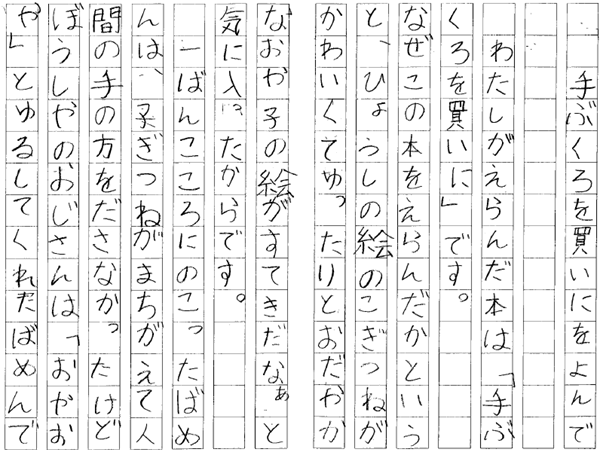 手ぶくろを買いにをよんで
わたしがえらんだ本は「手ぶ
くろを買いに」です。
なぜこの本をえらんだかという
と、ひょうしの絵のこぎつねが
かわいくてゆったりとおだやか
なおや子の絵がすてきだなぁと
気に入ったからです。
一ばんこころにのこったばめ
んは、子ぎつねがまちがえて人
間の手の方をださなかったけど
ぼうしやのおじさんは「おやお
や」とゆるしてくれたばめんで